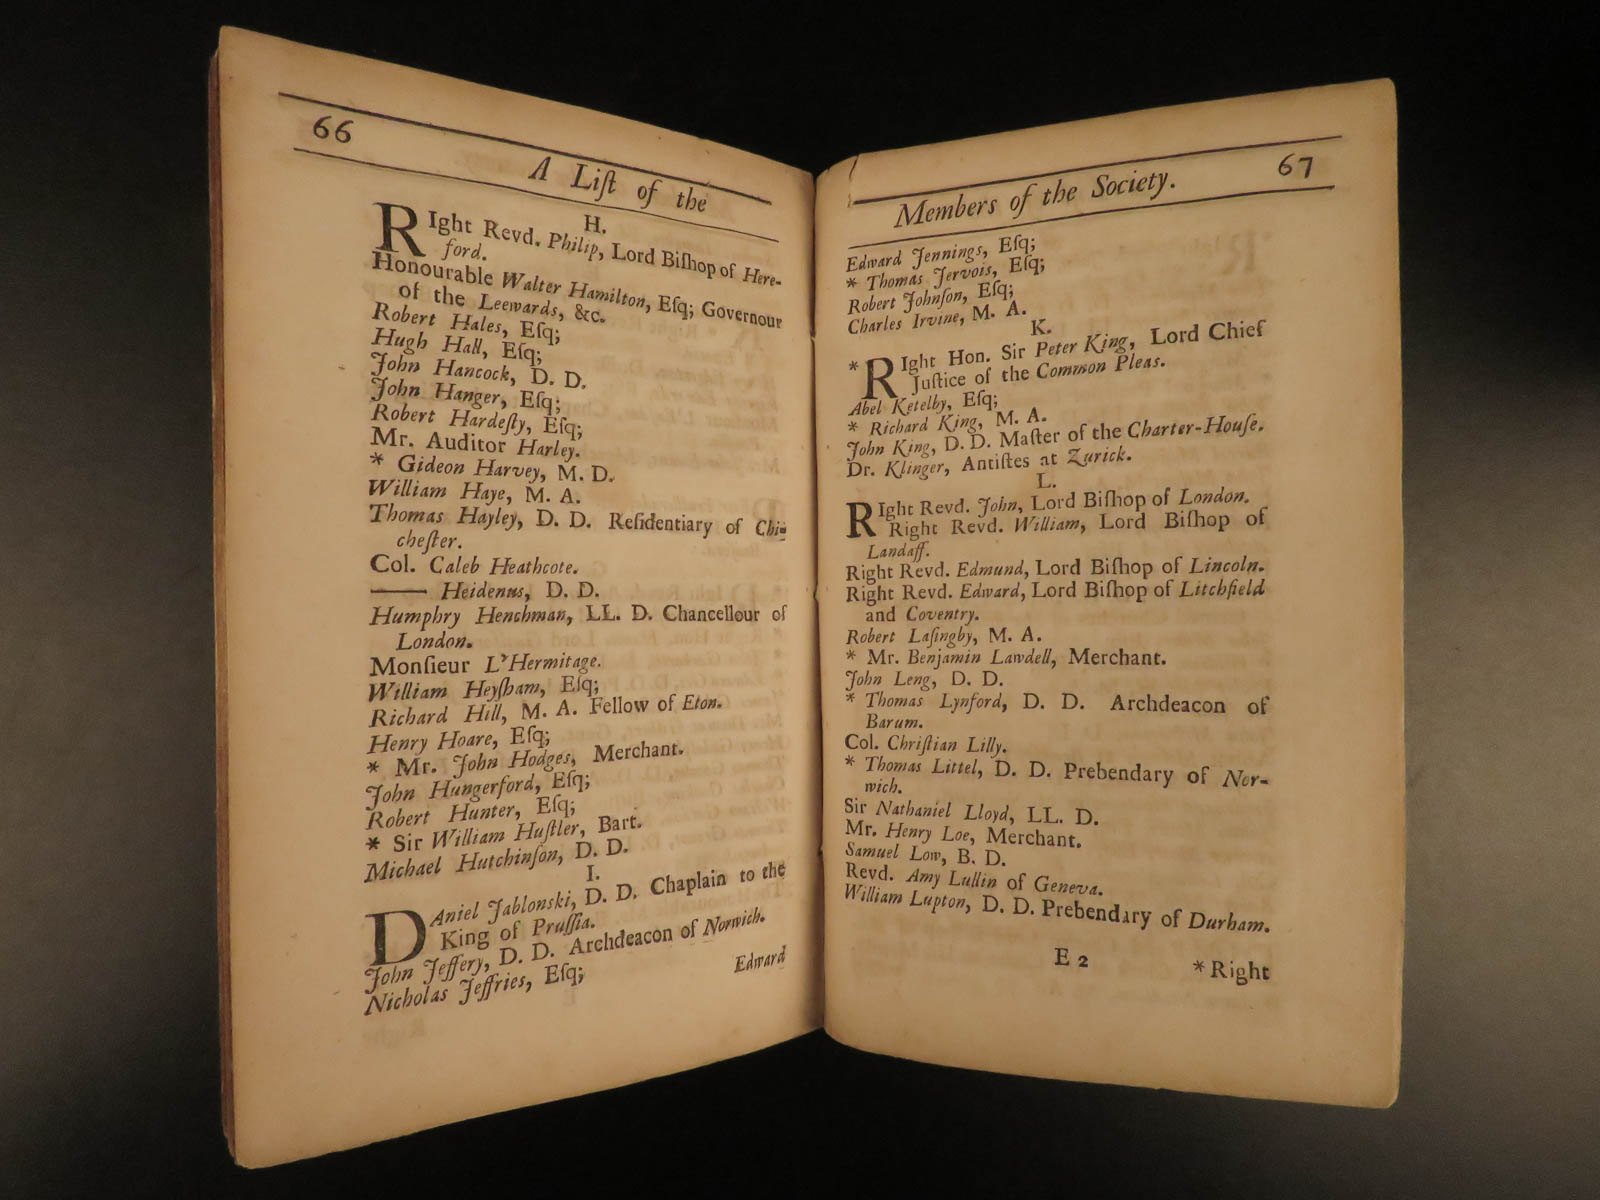 66
A Liſt of the
H.
RIght Revd. Philip, Lord Biſhop of Here-
ford.
Honourable Walter Hamilton, Eſq; Governour
of the Leewards, &c.
Robert Hales, Eſq;
Hugh Hall, Eſq;
John Hancock, D. D.
John Hanger, Eſq;
Robert Hardeſty, Eſq;
Mr. Auditor Harley.
* Gideon Harvey, M. D.
William Haye, M. A.
Thomas Hayley, D. D. Reſidentiary of Chi-
cheſter.
Col. Caleb Heathcote.
—— Heidenus, D. D.
Humphry Henchman, LL. D. Chancellour of
London.
Monſieur L'Hermitage.
William Heyſham, Eſq;
Richard Hill, M. A. Fellow of Eton.
Henry Hoare, Eſq;
* Mr. John Hodges, Merchant.
John Hungerford, Eſq;
Robert Hunter, Eſq;
* Sir William Huſtler, Bart.
Michael Hutchinſon, D. D.
I.
DAniel Jablonski, D. D. Chaplain to the
King of Pruſſia.
John Jeffery, D. D. Archdeacon of Norwich.
Nicholas Jeffries, Eſq;
Edward
67
Members of the Society.
Edward Jennings, Eſq;
* Thomas Jervois, Eſq;
Robert Johnſon, Eſq;
Charles Irvine, M. A.
K.
* RIght Hon. Sir Peter King, Lord Chief
Juſtice of the Common Pleas.
Abel Ketelby, Eſq;
* Richard King, M. A.
John King, D. D. Maſter of the Charter-Houſe.
Dr. Klinger, Antiſtes at Zurick.
L.
RIght Revd. John, Lord Biſhop of London.
Right Revd. William, Lord Biſhop of
Landaff.
Right Revd. Edmund, Lord Biſhop of Lincoln.
Right Revd. Edward, Lord Biſhop of Litchfield
and Coventry.
Robert Laſingby, M. A.
* Mr. Benjamin Lawdell, Merchant.
John Leng, D. D.
* Thomas Lynford, D. D. Archdeacon of
Barum.
Col. Chriſtian Lilly.
* Thomas Littel, D. D. Prebendary of Nor-
wich.
Sir Nathaniel Lloyd, LL. D.
Mr. Henry Loe, Merchant.
Samuel Low, B. D.
Revd. Amy Lullin of Geneva.
William Lupton, D. D. Prebendary of Durham.
E 2
*Right